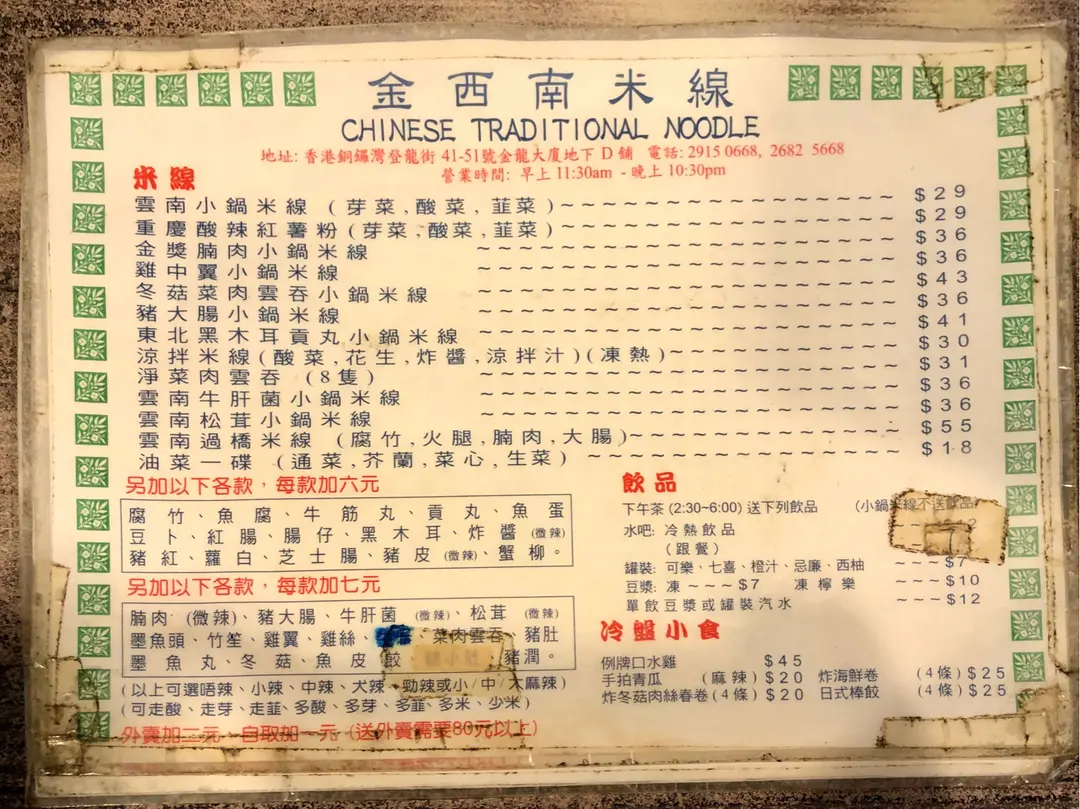 金西南米線
CHINESE TRADITIONAL NOODLE
地址: 香港銅鑼灣登龍街 41-51號金龍大廈地下 D 舖 電話: 2915 0668, 2682 5668
營業時間: 早上 11:30am - 晚上 10:30pm
米線
雲南小鍋米線 (芽菜,酸菜,韮菜)~~~~~~~~~~~~~~~~ $29
重慶酸辣紅薯粉(芽菜,酸菜,韮菜)~~~~~~~~~~~~~~~~ $29
金獎腩肉小鍋米線 ~~~~~~~~~~~~~~~~~~~~ $36
雞中翼小鍋米線 ~~~~~~~~~~~~~~~~~~~~ $36
冬菇菜肉雲吞小鍋米線 ~~~~~~~~~~~~~~~~~~~~ $43
豬大腸小鍋米線 ~~~~~~~~~~~~~~~~~~~~ $36
東北黑木耳貢丸小鍋米線 ~~~~~~~~~~~~~~~~~~~~ $41
涼拌米線(酸菜,花生,炸醬,涼拌汁)(凍熱)~~~~~~~~~~~ $30
淨菜肉雲吞 (8隻) ~~~~~~~~~~~~~~~~~~~~ $31
雲南牛肝菌小鍋米線 ~~~~~~~~~~~~~~~~~~~~ $36
雲南松茸小鍋米線 ~~~~~~~~~~~~~~~~~~~~ $36
雲南過橋米線 (腐竹,火腿,腩肉,大腸)~~~~~~~~~~~~~ $55
油菜一碟 (通菜,芥蘭,菜心,生菜) ~~~~~~~~~~~~~~~ $18
另加以下各款，每款加六元
腐竹、魚腐、牛筋丸、貢丸、魚蛋
豆卜、紅腸、腸仔、黑木耳、炸醬 (微辣)
豬紅、蘿白、芝士腸、豬皮 (微辣)、蟹柳。
另加以下各款，每款加七元
腩肉 (微辣)、豬大腸、牛肝菌 (微辣)、松茸 (微辣)
墨魚頭、竹笙、雞翼、雞絲、、菜肉雲吞、豬肚
墨魚丸、冬菇、魚皮餃、豬潤。
(以上可選唔辣、小辣、中辣、大辣、勁辣或小/中/大麻辣)
(可走酸、走芽、走韮、多酸、多芽、多韮、多米、少米)
外賣加二元 自取加一元 (送外賣需要80元以上)
飲品
下午茶 (2:30~6:00) 送下列飲品 (小鍋米線不送飲品)
水吧: 冷熱飲品 2
(跟餐)
罐裝: 可樂、七喜、橙汁、忌廉、西柚 ~~~$7
豆漿: 凍~~~$7 凍檸樂 ~~~$10
單飲豆漿或罐裝汽水 ~~~$12
冷盤小食
例牌口水雞 $45
手拍青瓜 (麻辣) $20 炸海鮮卷 (4條) $25
炸冬菇肉絲春卷(4條) $20 日式棒餃 (4條) $25